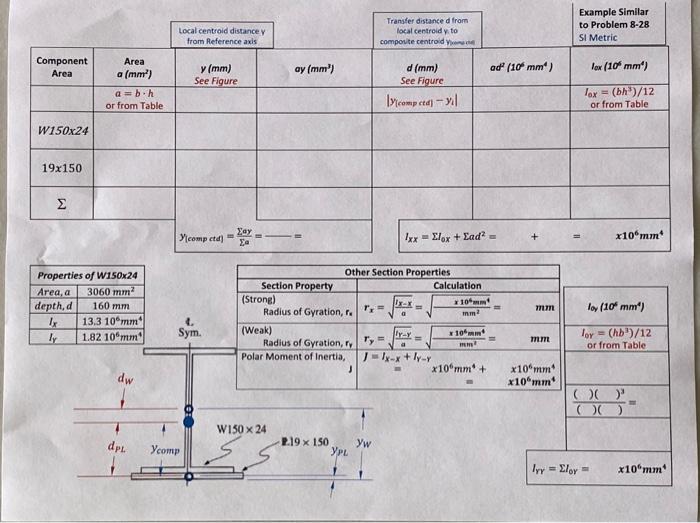 Local centroid distance y
from Reference axis
Transfer distance d from
local centroid yᵢ to
composite centroid
Example Similar
to Problem 8-28
SI Metric
Component
Area
Area
a (mm²)
y (mm)
See Figure
ay (mm³)
d (mm)
See Figure
ad² (10⁶ mm⁴)
Iox (10⁶ mm⁴)
a = b · h
or from Table
|y(comp ctd) − yᵢ|
Iox = (bh³)/12
or from Table
W150x24
19x150
Σ
y(comp ctd) = Σay/Σa = ——— =
Ixx = ΣIox + Σad² = + = x10⁶mm⁴
Properties of W150x24
Area, a 3060 mm²
depth, d 160 mm
Ix 13.3 10⁶mm⁴
Iy 1.82 10⁶mm⁴
Other Section Properties
Section Property Calculation
(Strong)
Radius of Gyration, rₓ rₓ = √(Ix−x/a) = √(x 10⁶mm⁴/mm²) = mm
(Weak)
Radius of Gyration, rᵧ rᵧ = √(Iy−y/a) = √(x 10⁶mm⁴/mm²) = mm
Polar Moment of Inertia, J J = Ix−x + Iy−y
= x10⁶mm⁴ + x10⁶mm⁴
= x10⁶mm⁴
Ioy (10⁶ mm⁴)
Ioy = (hb³)/12
or from Table
( )( )³
( )( ) =
Iyy = ΣIoy = x10⁶mm⁴
Sym.
dw
W150 × 24
PL19 × 150
dPL
Ycomp
yPL
yw